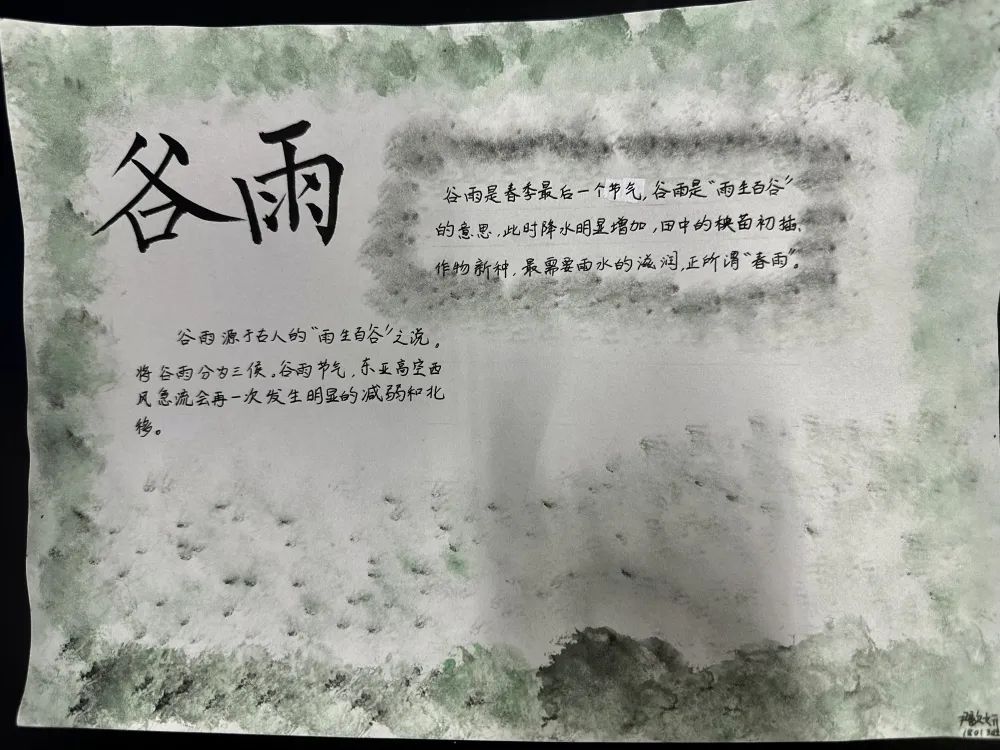 谷雨
谷雨是春季最后一个节气,谷雨是“雨生百谷”
的意思,此时降水明显增加,田中的秧苗初插、
作物新种,最需要雨水的滋润,正所谓“春雨”。
谷雨源于古人的“雨生百谷”之说。
将谷雨分为三候。谷雨节气,东亚高空西
风急流会再一次发生明显的减弱和北
移。